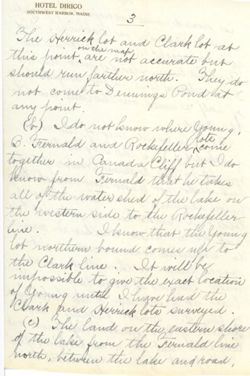 HOTEL DIRIGO
SOUTHWEST HARBOR, MAINE
3
The Herrick lot and Clark lot at
on the map
this point, are not accurate but
should run farther north. They do
not come to Dennings Pond at
any point.
(b) I do not know where Young,
lots
B. Fernald and Rockefeller come
together in Canada Cliff but I do
know from Fernald that he takes
all of the water shed of the lake on
the western side to the Rockefeller
line. I know that the Young
lot northern bound comes up to
the Clark line. It will be
impossible to give the exact location
of Young until I have had the
Clark and Herrick lots surveyed.
(c) The land on the eastern shore
of the lake from the Fernald line
north, between the lake and road,